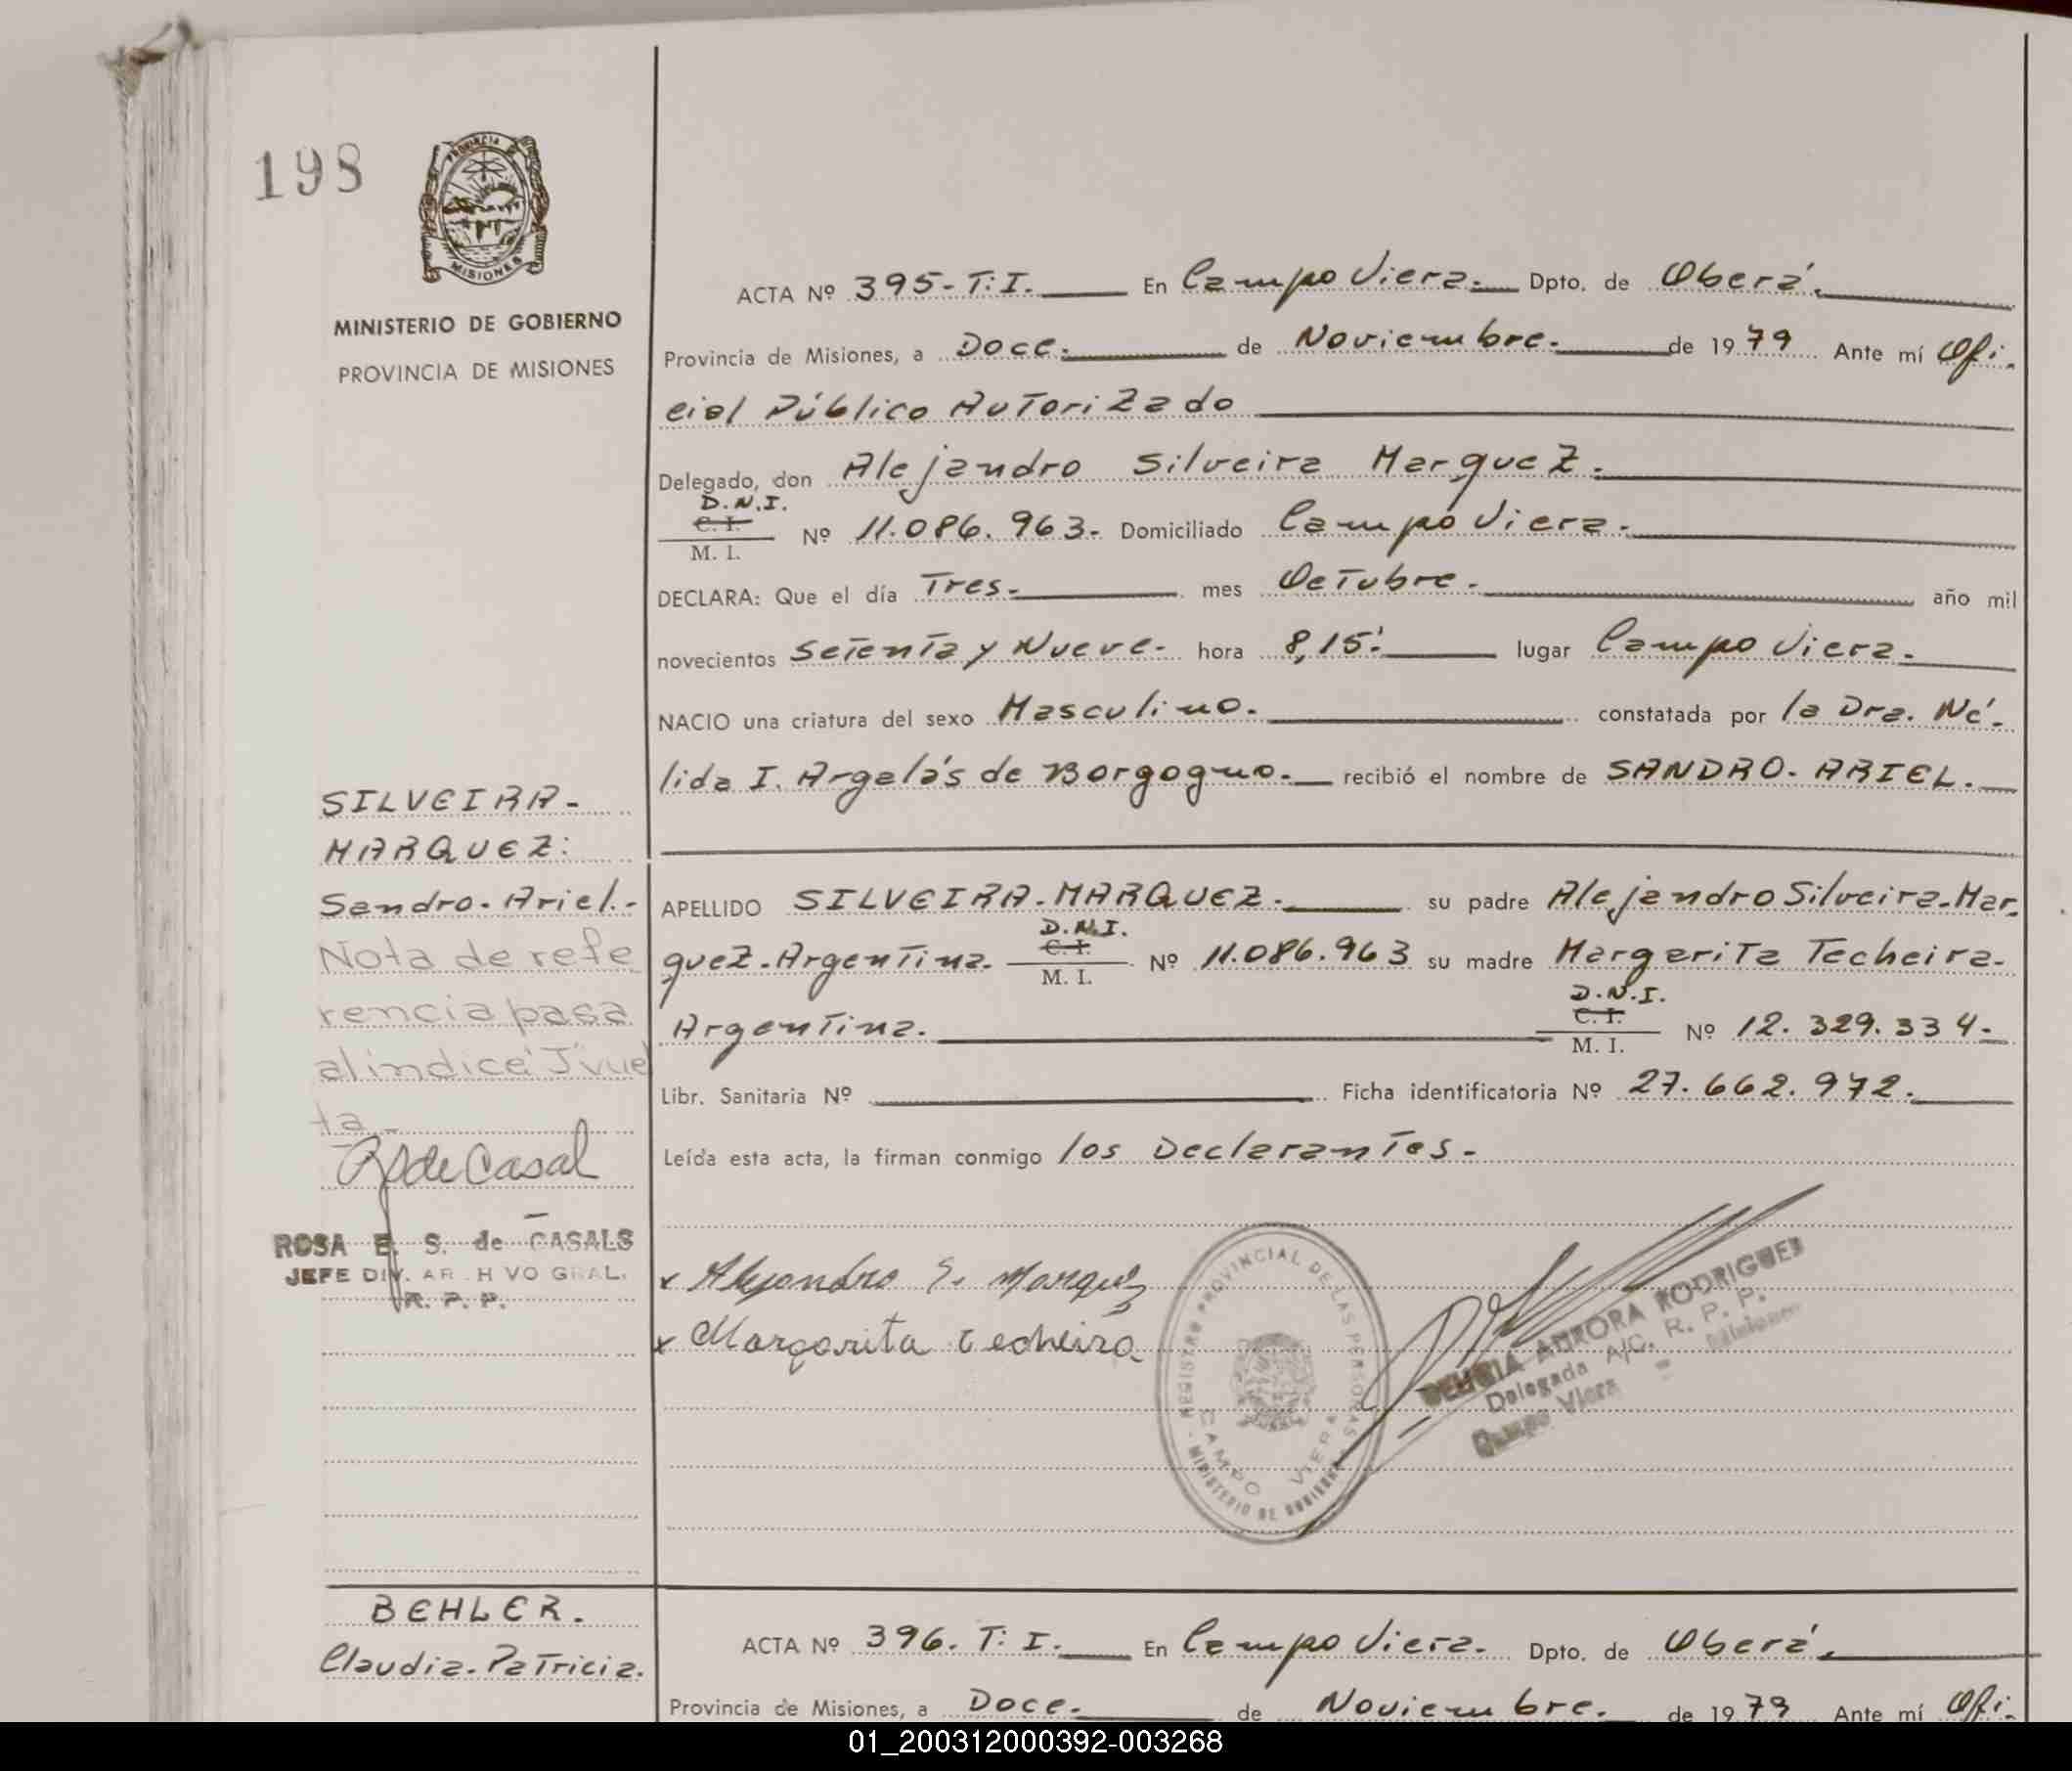 198
PROVINCIA
MISIONES
MINISTERIO DE GOBIERNO
PROVINCIA DE MISIONES
ACTA Nº 395-T.I. En Campo Viera. Dpto. de Oberá.
Provincia de Misiones, a Doce. de Noviembre. de 1979 Ante mí Ofi-
cial Público Autorizado
Delegado, don Alejandro Silveira Marquez.
D.N.I.
C. I.
M. I. Nº 11.086.963- Domiciliado Campo Viera.
DECLARA: Que el día Tres. mes Octubre. año mil
novecientos Setenta y Nueve- hora 8,15' lugar Campo Viera.
NACIO una criatura del sexo Masculino. constatada por la Dra. Né-
lida I. Argelás de Borgogno. recibió el nombre de SANDRO. ARIEL.
SILVEIRA-
MARQUEZ:
Sandro. Ariel.-
Nota de refe
rencia pasa
al indice J vuel
ta.-
RSde Casal
ROSA E. S. de CASALS
JEFE DIV. AR H VO GRAL.
R. P. P.
APELLIDO SILVEIRA-MARQUEZ. su padre Alejandro Silveira-Mar-
quez-Argentina.
D.N.I.
C. I.
M. I. Nº 11.086.963 su madre Margarita Techeira-
Argentina.
D.N.I.
C. I.
M. I. Nº 12.329.334-
Libr. Sanitaria Nº Ficha identificatoria Nº 27.662.972.
Leída esta acta, la firman conmigo los Declarantes-
x Alejandro S. Marquez
x Margarita Techeira
REGISTRO PROVINCIAL DE LAS PERSONAS
MINISTERIO DE GOBIERNO
CAMPO VIERA
AURORA RODRIGUEZ
Delegada A/C. R. P. P.
Campo Viera - Misiones
BEHLER.
Claudia. Patricia.
ACTA Nº 396. T. I. En Campo Viera. Dpto. de Oberá.
Provincia de Misiones, a Doce. de Noviembre. de 1979 Ante mí Ofi-
01_200312000392-003268